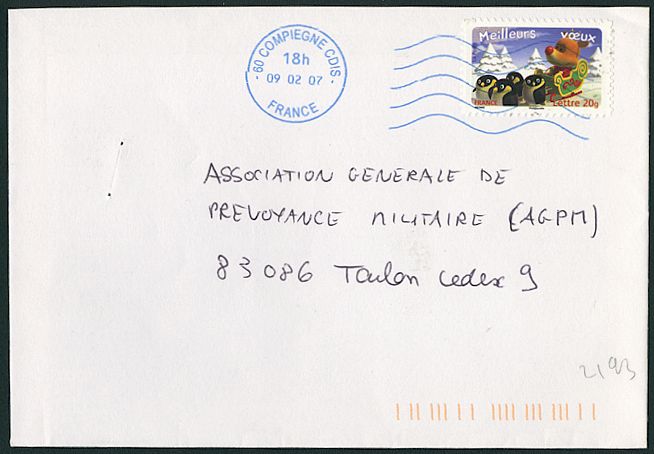 60 COMPIEGNE CDIS
18h
09 02 07
FRANCE
Meilleurs vœux
FRANCE
Lettre 20g
ASSOCIATION GENERALE DE
PREVOYANCE MILITAIRE (AGPM)
83086 Toulon cedex 9
2193